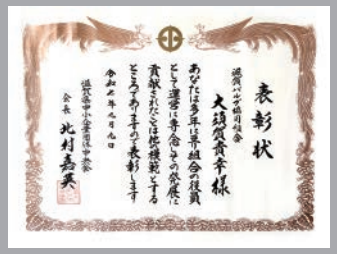 表彰状
滋賀バルブ協同組合
大須賀貴幸様
あなたは多年に亘り組合の役員
として運営に専念しその発展に
貢献されたことは他の模範とする
ところでありますので表彰します
令和七年九月九日
滋賀県中小企業団体中央会
会長 北村嘉英